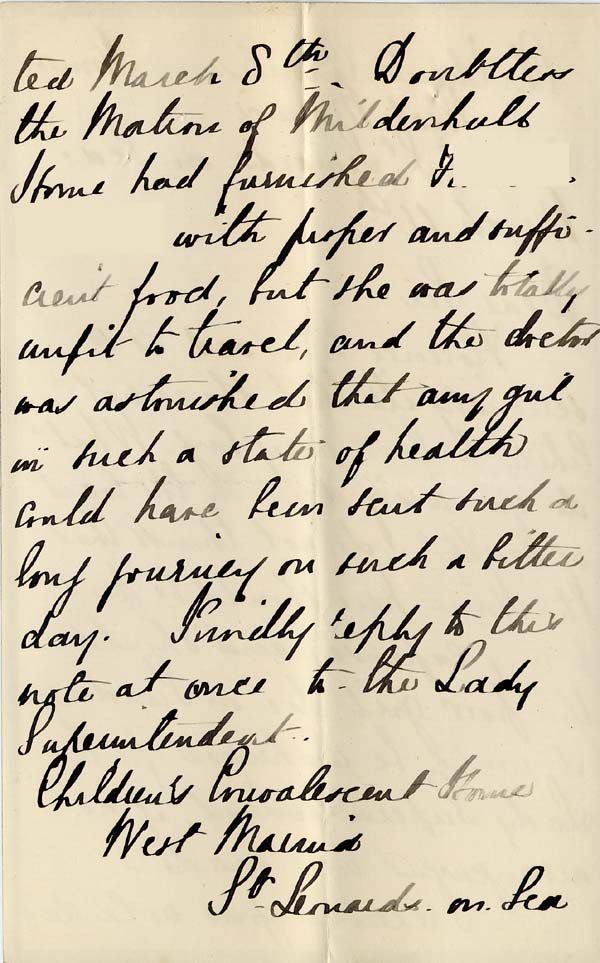 ted March 8th. Doubtless
the Matron of Mildenhall
Home had furnished F.
with proper and suffi-
cient food, but she was totally
unfit to travel, and the doctor
was astonished that any girl
in such a state of health
could have been sent such a
long journey on such a bitter
day. Kindly reply to this
note at once to the Lady
Superintendent.
Children's Convalescent Home
West Marina
St. Leonards. on. Sea